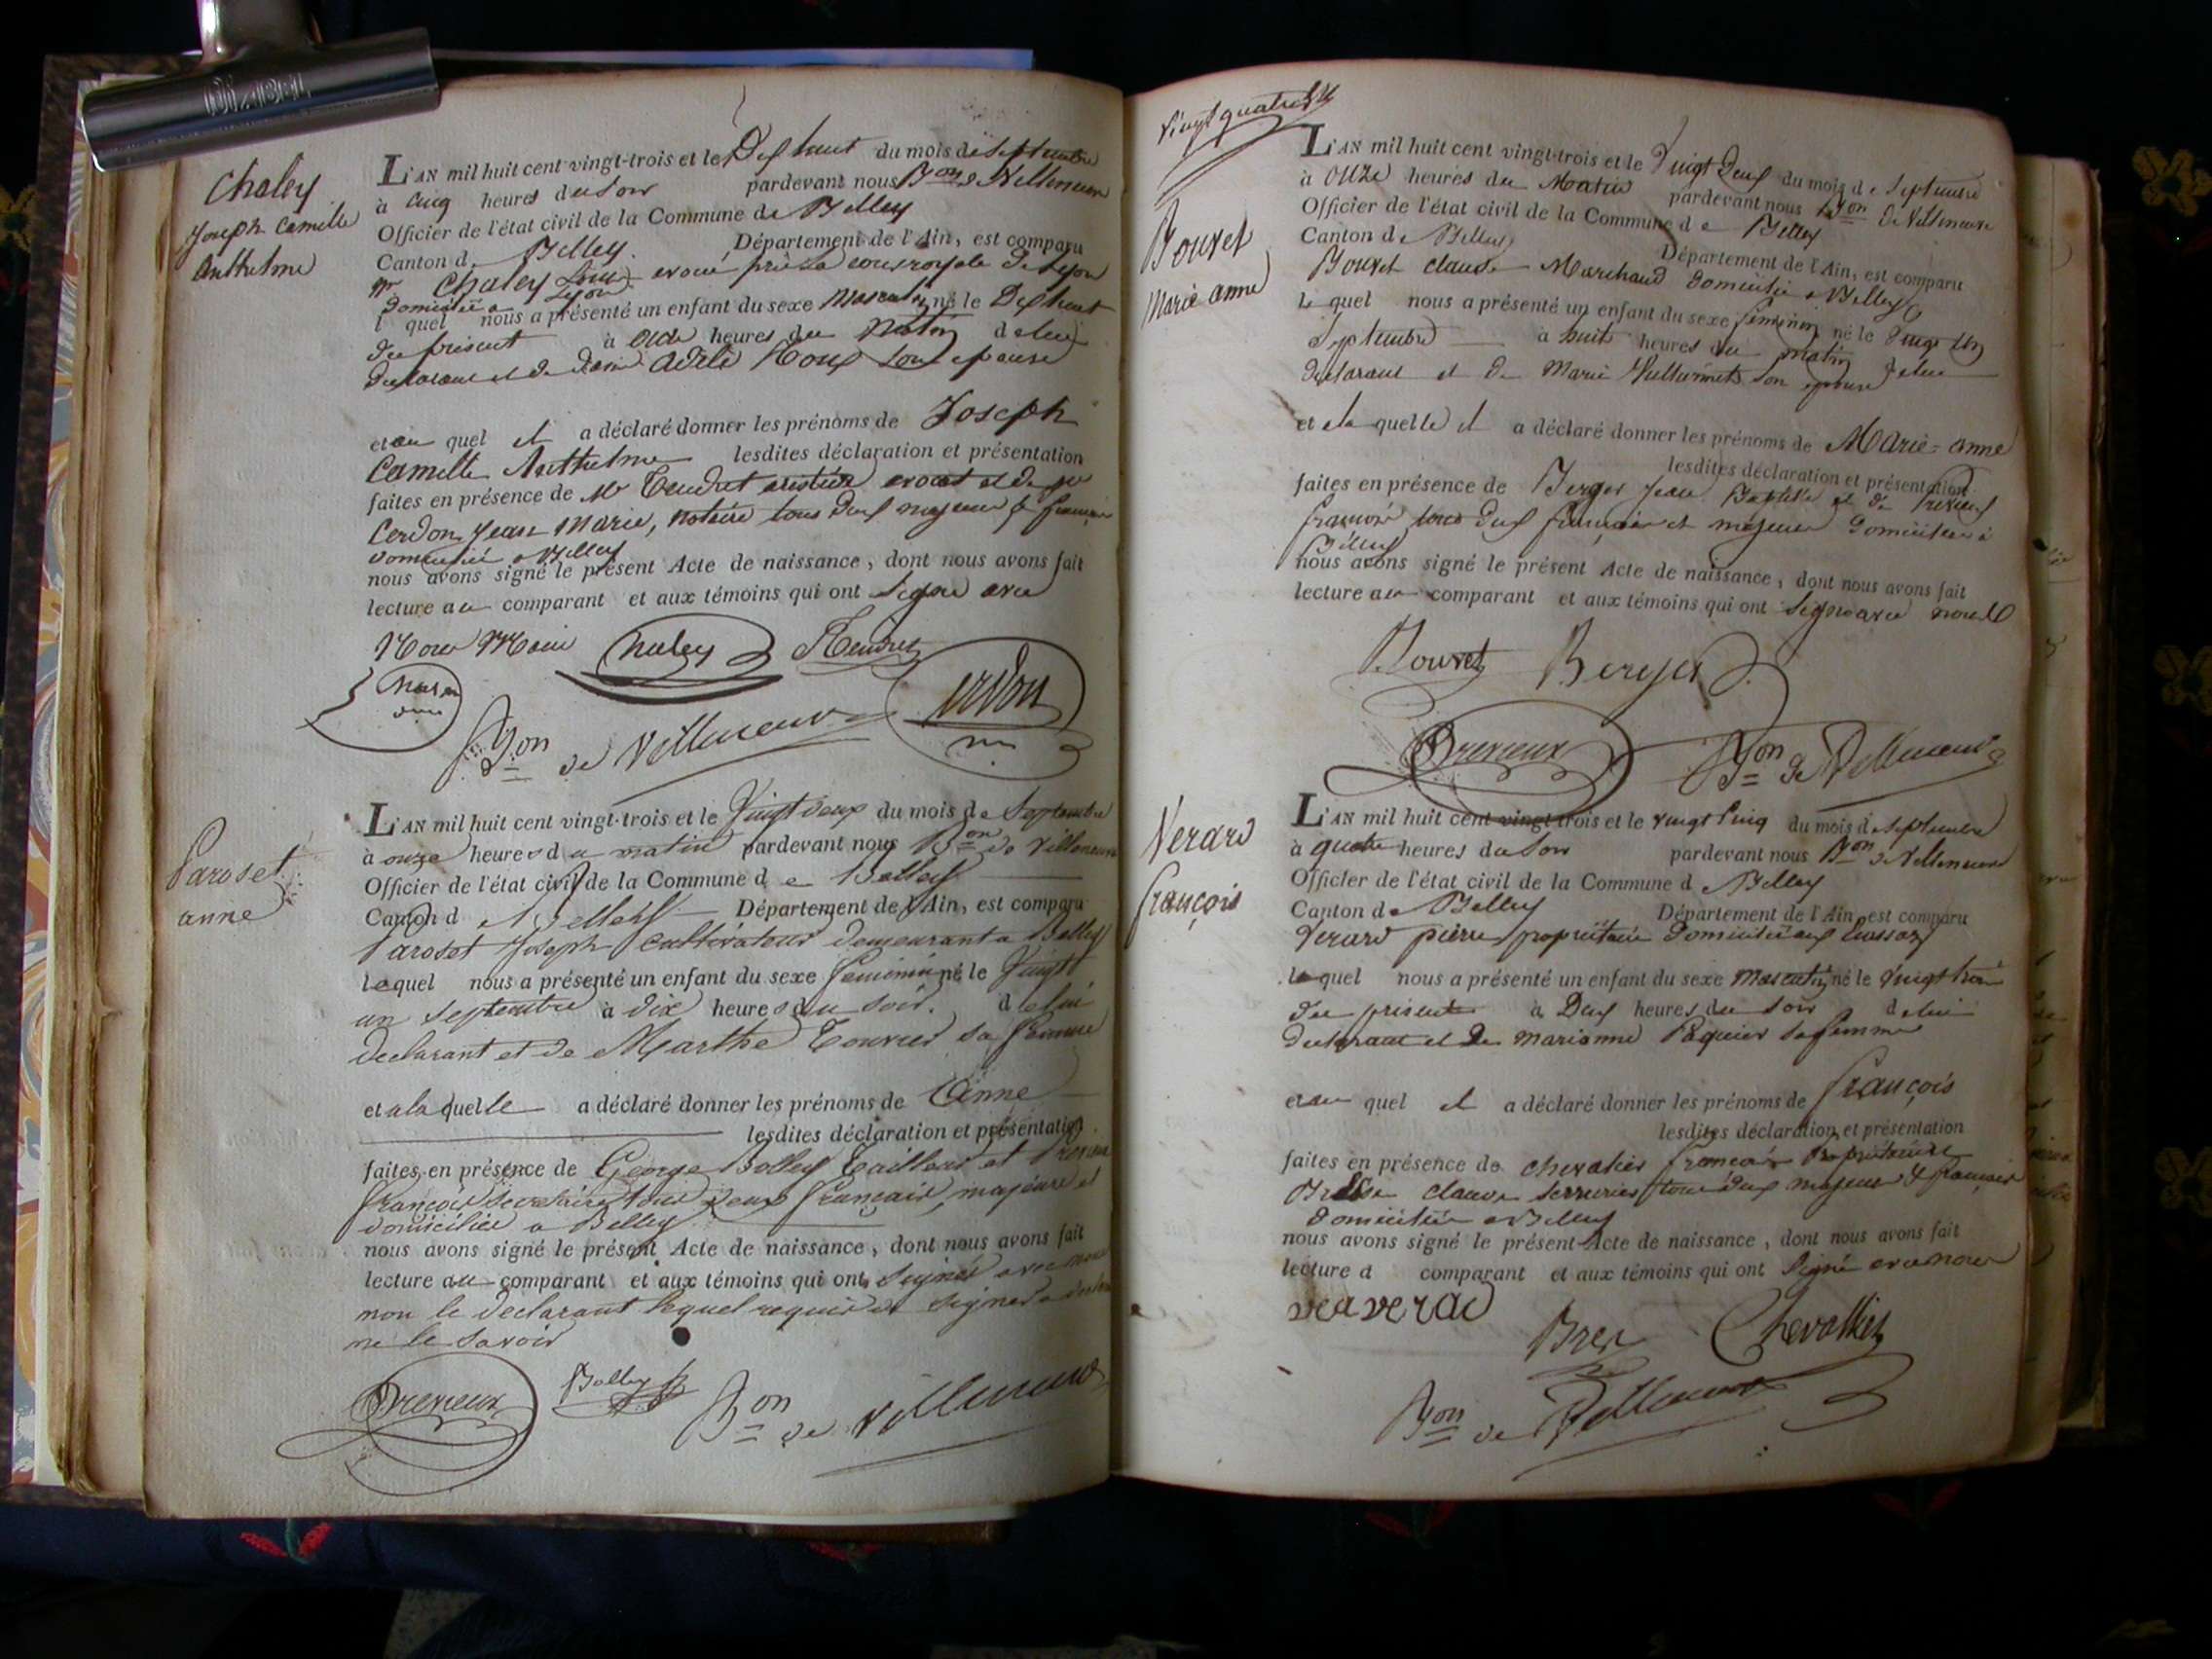 Chaley
Joseph Camille
Anthelme
L'AN mil huit cent vingt-trois et le Dix huit du mois de Septembre
à Cinq heures du Soir pardevant nous Bon de Villeneuve
Officier de l'état civil de la Commune de Belley
Canton de Belley. Département de l'Ain, est comparu
Mr Chaley Louis avoué près la cour royale de Lyon
domicilié a Lyon
lequel nous a présenté un enfant du sexe Masculin né le Dix huit
du présent à onze heures du Matin de lui
declarant et de dame Adèle Roux son epouse
et au quel il a déclaré donner les prénoms de Joseph
Camille Anthelme lesdites déclaration et présentation
faites en présence de Mr Tendret avocat et de Mr
Cerdon Jean Marie, notaire tous deux majeurs & français
domicilié a Belley
nous avons signé le présent Acte de naissance, dont nous avons fait
lecture au comparant et aux témoins qui ont Signé avec
Nous
Chaley Tendret
Cerdon
Bon de Villeneuve
Paroset
anne
L'AN mil huit cent vingt-trois et le Vingt deux du mois de Septembre
à onze heures du matin pardevant nous Bon de Villeneuve
Officier de l'état civil de la Commune de Belley
Canton de Belley Département de l'Ain, est comparu
Paroset Joseph Cultivateur demeurant a Belley
lequel nous a présenté un enfant du sexe feminin né le Vingt
un Septembre à dix heures du soir. de lui
declarant et de Marthe Touvier sa femme
et a la quelle a déclaré donner les prénoms de Anne
lesdites déclaration et présentation
faites en présence de George Bolley Tailleur et Prereux
françois Secretaire tous deux français, majeurs et
domiciliés a Belley
nous avons signé le présent Acte de naissance, dont nous avons fait
lecture au comparant et aux témoins qui ont Signés avec nous
non le declarant lequel requis de signer a declaré
ne le Savoir
Prereux Bolley Bon de Villeneuve
Vingt quatre
Bouvet
Marie anne
L'AN mil huit cent vingt-trois et le Vingt Deux du mois de Septembre
à onze heures du Matin pardevant nous Bon de Villeneuve
Officier de l'état civil de la Commune de Belley
Canton de Belley Département de l'Ain, est comparu
Bouvet claude Marchand domicilié a Belley
lequel nous a présenté un enfant du sexe féminin né le Vingt Un
Septembre à huit heures du matin de lui
declarant et de Marie Vullermet son epouse
et a la quelle il a déclaré donner les prénoms de Marie-anne
lesdites déclaration et présentation
faites en présence de Berger Jean Baptiste et de Prereux
françois tous deux français et majeurs domiciliés à
Belley
nous avons signé le présent Acte de naissance, dont nous avons fait
lecture au comparant et aux témoins qui ont Signé avec nous
Bouvet Berger
Prereux Bon de Villeneuve
Verard
françois
L'AN mil huit cent vingt-trois et le vingt Cinq du mois de Septembre
à quatre heures du Soir pardevant nous Bon de Villeneuve
Officier de l'état civil de la Commune de Belley
Canton de Belley Département de l'Ain, est comparu
Verard pierre propriétaire domicilié aux
lequel nous a présenté un enfant du sexe Masculin né le Vingt trois
du présent à Deux heures du Soir de lui
declarant et de Marianne Paquier sa femme
et au quel il a déclaré donner les prénoms de françois
lesdites déclaration et présentation
faites en présence de chevalier françois Propriétaire
claude Serrurier tous deux majeurs & français
domiciliés a Belley
nous avons signé le présent Acte de naissance, dont nous avons fait
lecture a comparant et aux témoins qui ont Signé avec nous
Chevallier
Bon de Villeneuve